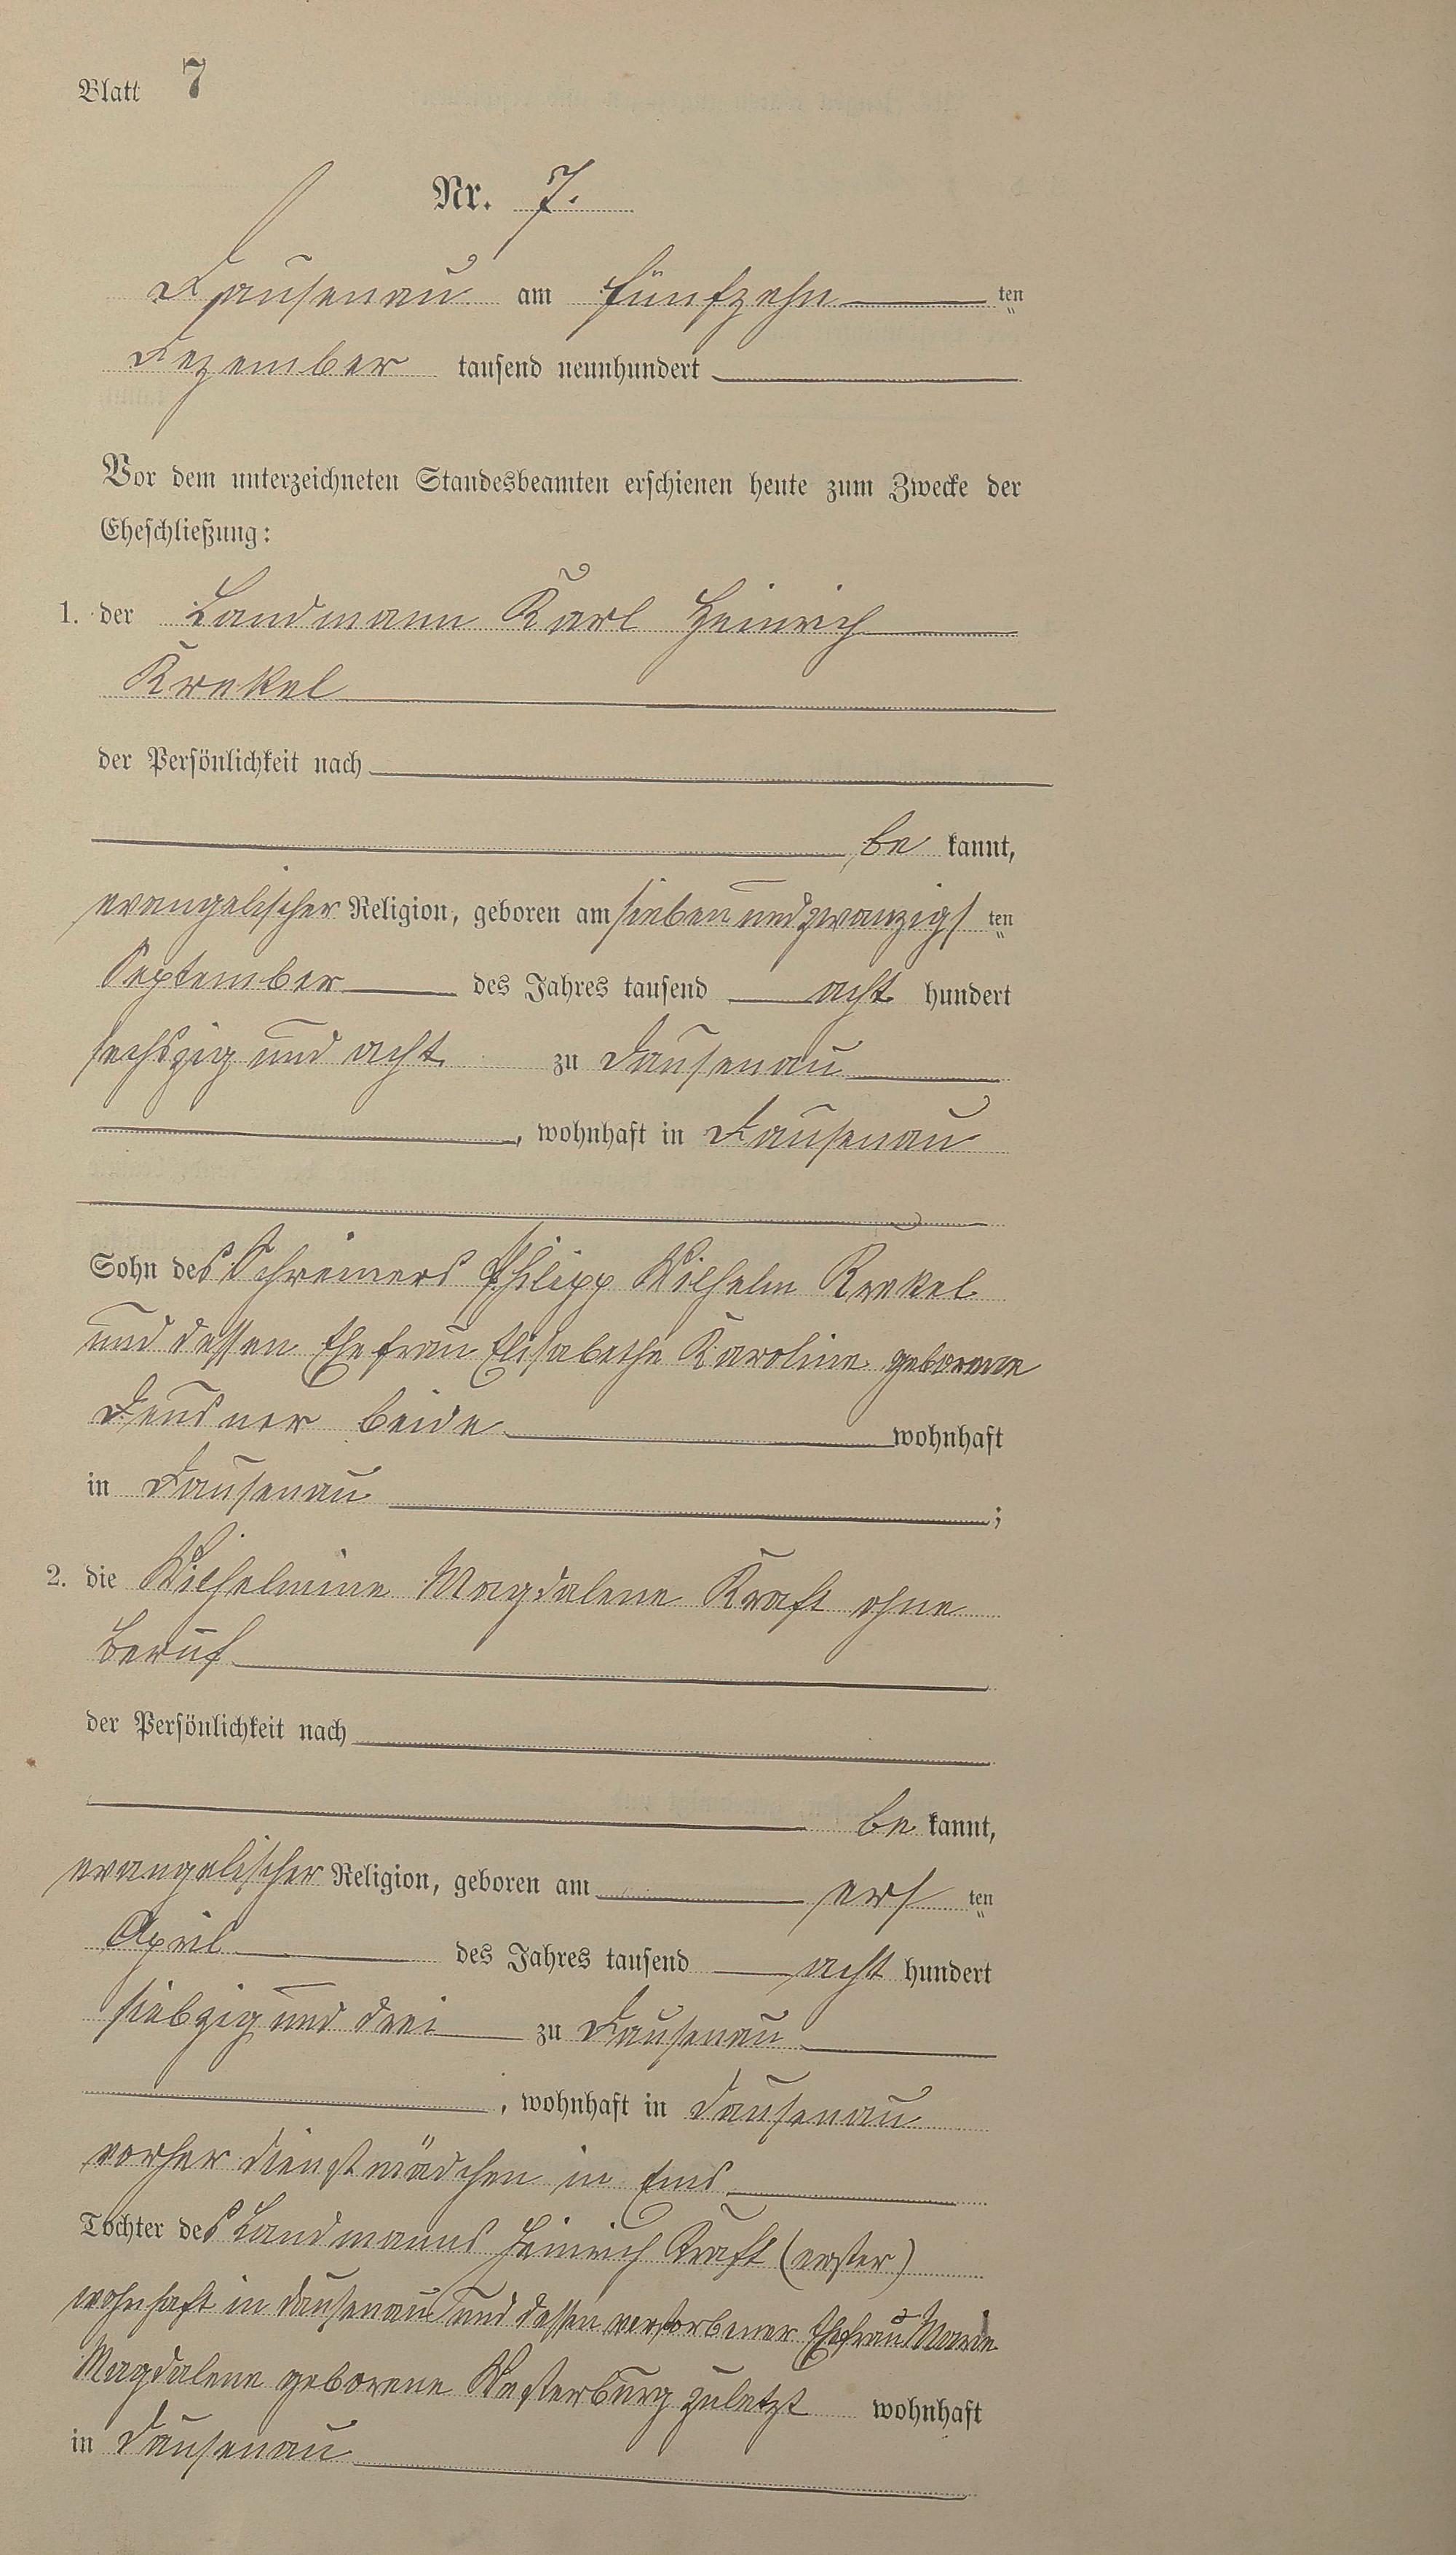 Blatt 7
Nr. 7.
Dausenau am fünfzehn ten
Dezember tausend neunhundert
Vor dem unterzeichneten Standesbeamten erschienen heute zum Zwecke der
Eheschließung:
1. der Landmann Karl Heinrich
Krekel
der Persönlichkeit nach
be kannt,
evangelischer Religion, geboren am sieben und zwanzigs ten
September des Jahres tausend acht hundert
sechszig und acht zu Dausenau
, wohnhaft in Dausenau
Sohn des Schreiners Philipp Wilhelm Krekel
und dessen Ehefrau Elisabethe Karoline geborene
beide wohnhaft
in Dausenau ;
2. die Wilhelmine Magdalene Kraft ohne
Beruf
der Persönlichkeit nach
be kannt,
evangelischer Religion, geboren am ers ten
April des Jahres tausend acht hundert
siebzig und drei zu Dausenau
, wohnhaft in Dausenau
vorher Dienstmädchen in Ems
Tochter des Landmanns Heinrich Kraft (erster)
wohnhaft in Dausenau und dessen verstorbener Ehefrau Marie
Magdalene geborene Westerburg zuletzt wohnhaft
in Dausenau